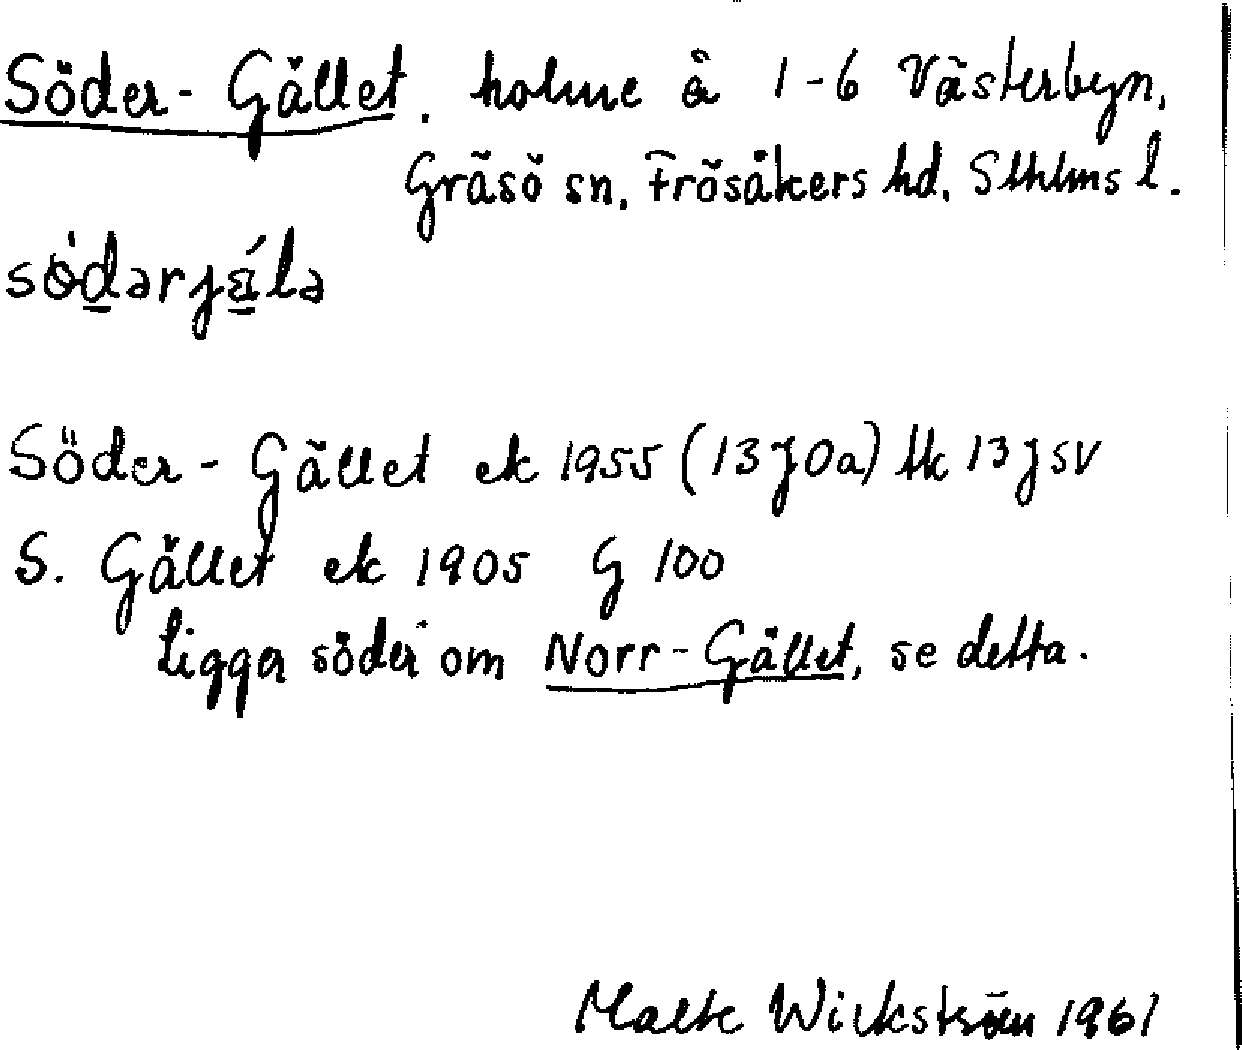 Söder-Gället. holme å 1-6 Västerbyn,
Gräsö sn, Frösåkers hd, Sthlms l.
södərjä́lə
Söder-Gället ek 1955 (13J0a) tk 13JSV
S. Gället ek 1905 G 100
ligger söder om Norr-Gället, se detta.
Malte Wickström 1961